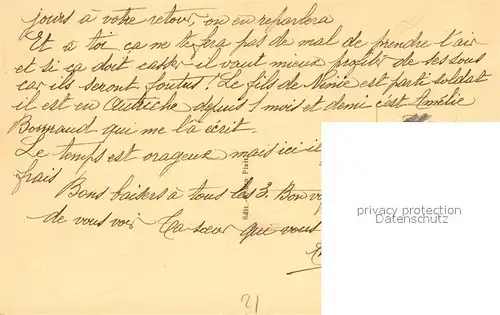 jours à votre retour, on en reparlera
Et à toi ça ne te fera pas de mal de prendre l'air
et si ça doit casser il vaut mieux profiter de ses sous
car ils seront foutus! Le fils de Ninie est parti soldat
il est en Autriche depuis 1 mois et demi c'est Amélie
qui me l'a écrit.
Le temps est orageux mais ici il
frais
Bons baisers à tous les 3. Bon
de vous voir Ta sœur qui vous
privacy protection
Datenschutz
21